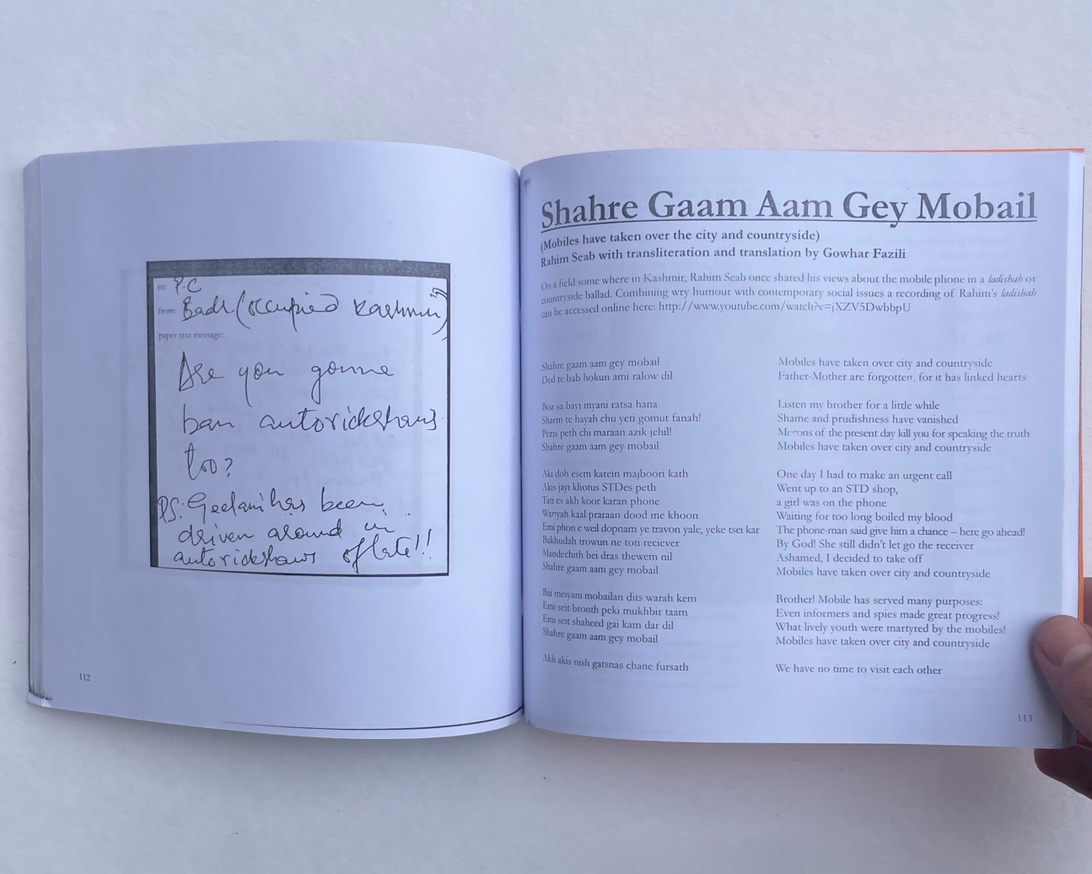 to: P.C
from: Badr (occupied Kashmir)
paper text message:
Are you gonne
ban autorickshaws
too?
PS: Geelani has been
driven around in
autorickshaws of late!!
112
Shahre Gaam Aam Gey Mobail
(Mobiles have taken over the city and countryside)
Rahim Seab with transliteration and translation by Gowhar Fazili
On a field some where in Kashmir, Rahim Seab once shared his views about the mobile phone in a ladishah or
countryside ballad. Combining wry humour with contemporary social issues a recording of Rahim's ladishah
can be accessed online here: http://www.youtube.com/watch?v=jXZV5DwbbpU
Shahre gaam aam gey mobail
Ded te bab hokun ami ralow dil
Boz sa bayi myani ratsa hana
Sharm te hayah chu yeti gomut fanah!
Pezis peth chi maraan azik jehil!
Shahre gaam aam gey mobail
Aki doh esem karein majboori kath
Akis jayi khotus STDes peth
Tati es akh koor karan phone
Waryah kaal praraan dood me khoon
Emi phon e weil dopnam ye travon yale, yeke tsei kar
Bakhudah trowun ne toti reciever
Mandechith bei dras thewem nil
Shahre gaam aam gey mobail
Bai meiyani mobailan dits warah kem
Emi seit bronth peki mukhbir taam
Emi seit shaheed gai kam dar dil
Shahre gaam aam gey mobail
Akh akis nish gatsnas chane fursath
Mobiles have taken over city and countryside
Father-Mother are forgotten, for it has linked hearts
Listen my brother for a little while
Shame and prudishness have vanished
Morons of the present day kill you for speaking the truth
Mobiles have taken over city and countryside
One day I had to make an urgent call
Went up to an STD shop,
a girl was on the phone
Waiting for too long boiled my blood
The phone-man said give him a chance – here go ahead!
By God! She still didn't let go the receiver
Ashamed, I decided to take off
Mobiles have taken over city and countryside
Brother! Mobile has served many purposes:
Even informers and spies made great progress!
What lively youth were martyred by the mobiles!
Mobiles have taken over city and countryside
We have no time to visit each other
113